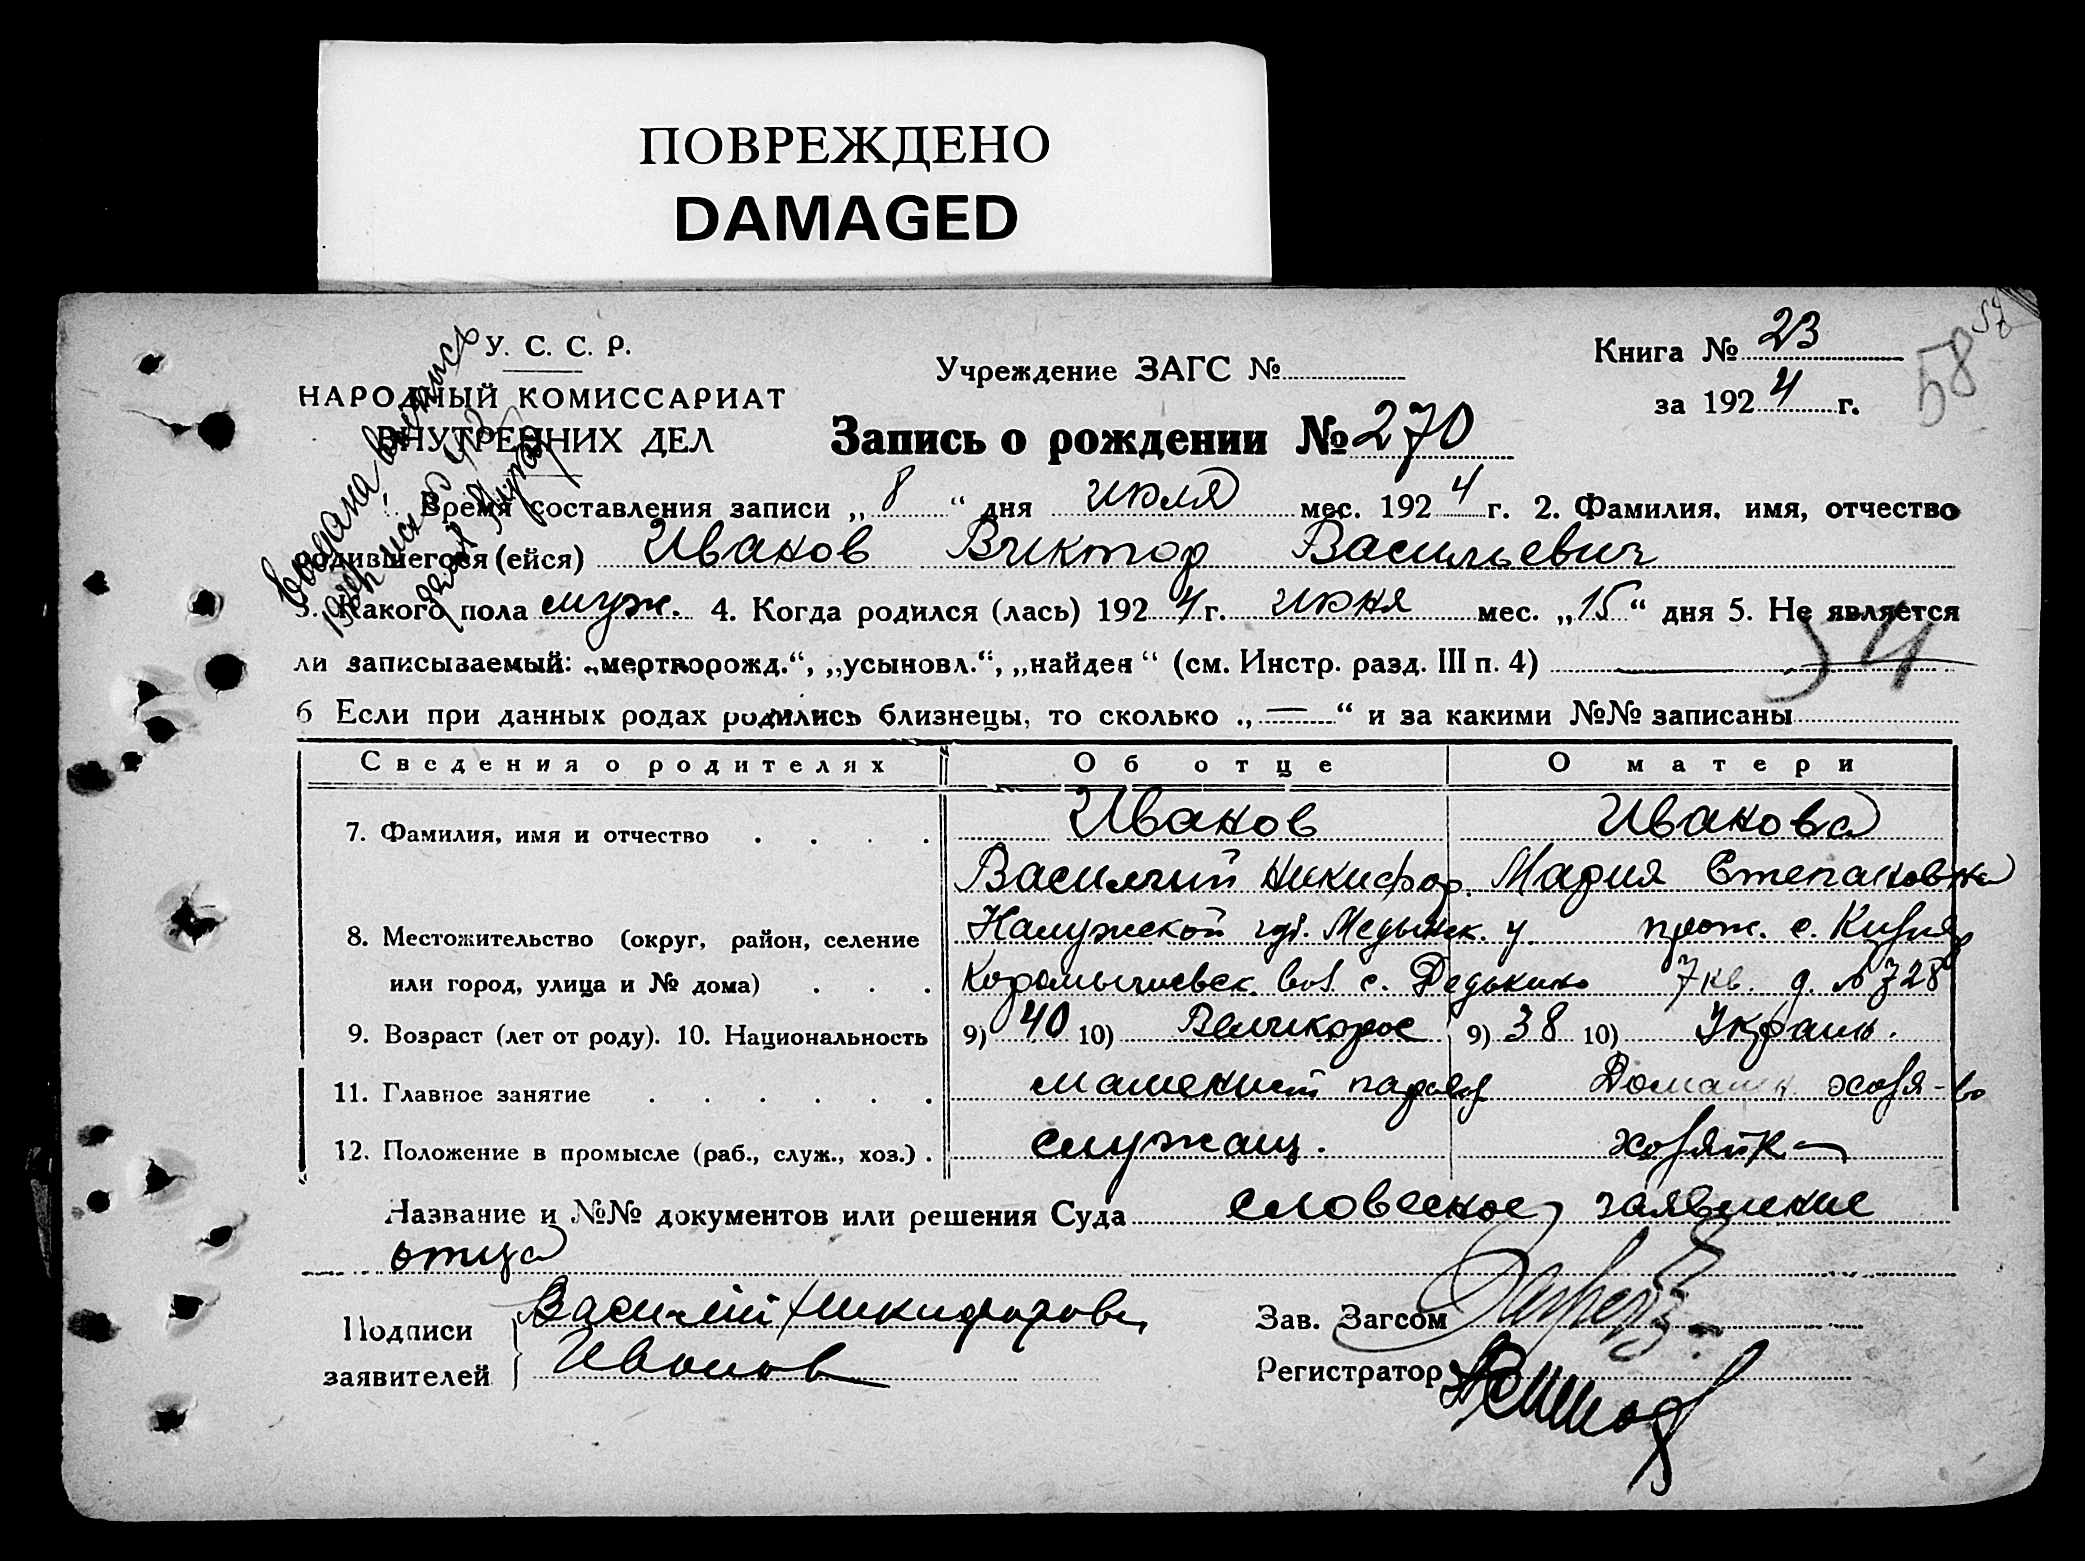 ПОВРЕЖДЕНО
DAMAGED
У. С. С. Р.
НАРОДНЫЙ КОМИССАРИАТ
ВНУТРЕННИХ ДЕЛ
Учреждение ЗАГС №
Книга № 23
за 1924 г.
58
58
Запись о рождении № 270
Выдана выпись
Время составления записи „8“ дня июля мес. 1924 г. 2. Фамилия, имя, отчество
родившегося (ейся) Иванов Виктор Васильевич
3. Какого пола муж. 4. Когда родился (лась) 1924 г. июня мес. „15“ дня 5. Не является
ли записываемый: „мертворожд.“, „усыновл.“, „найден“ (см. Инстр. разд. III п. 4) —
6 Если при данных родах родились близнецы, то сколько „—“ и за какими №№ записаны
Сведения о родителях Об отце О матери
7. Фамилия, имя и отчество Иванов Иванова
Василий Никифор. Мария Степановна
8. Местожительство (округ, район, селение Калужской губ. Медынск. у. прож. с.
или город, улица и № дома) вол. с. Дедькино 7 кв. д. № 728
9. Возраст (лет от роду). 10. Национальность 9) 40 10) Великорос 9) 38 10) Украин.
11. Главное занятие машинист Домашн. хозя-во
12. Положение в промысле (раб., служ., хоз.) служащ. хозяйк
Название и №№ документов или решения Суда словесное заявление
отца
Подписи заявителей Василий Никифорович
Иванов
Зав. Загсом
Регистратор